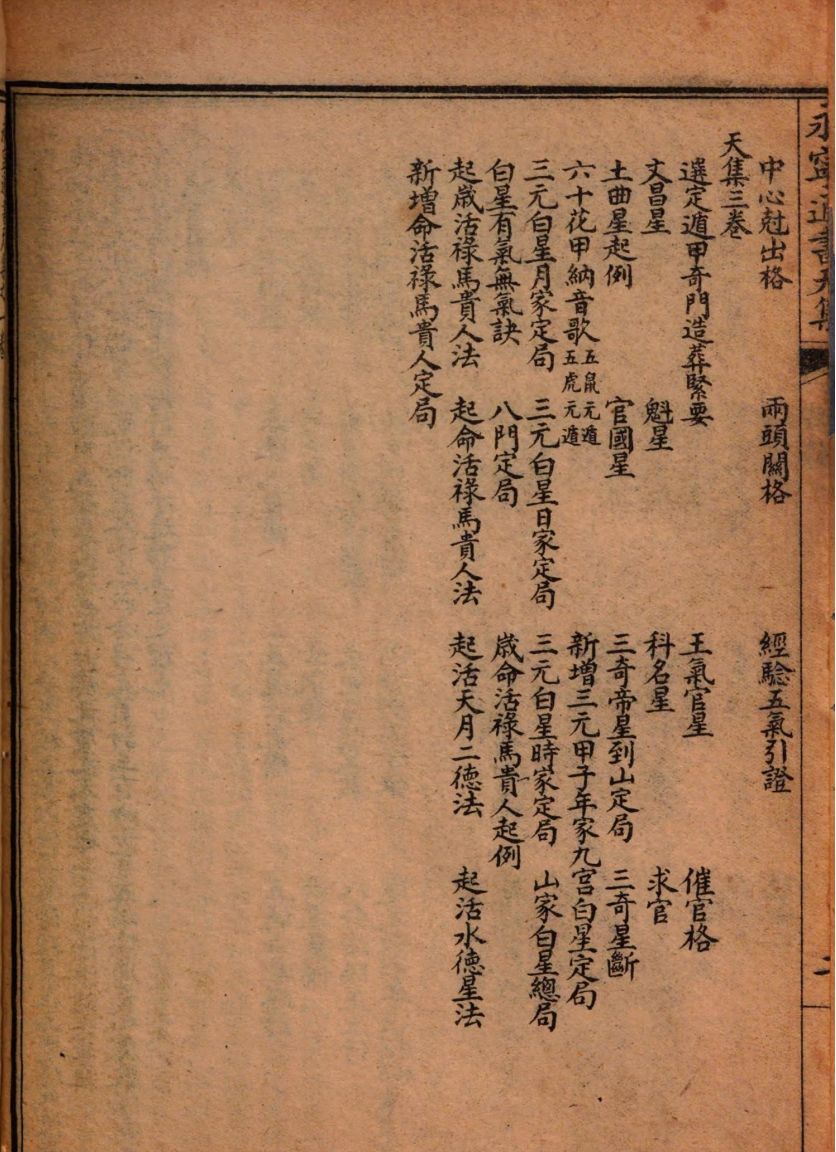 永寧通書天集
中心尅出格 兩頭關格 經驗五氣引證
天集三巻
選定遁甲奇門造葬緊要 王氣官星 催官格
文昌星 魁星 科名星 求官
土曲星起例 官國星 三奇帝星到山定局 三奇星斷
六十花甲納音歌 五鼠元遁 五虎元遁 新增三元甲子年家九宮白星定局
三元白星月家定局 三元白星日家定局 三元白星時家定局 山家白星總局
白星有氣無氣訣 八門定局 歲命活祿馬貴人起例
起歲活祿馬貴人法 起命活祿馬貴人法 起活天月二德法 起活水德星法
新增命活祿馬貴人定局